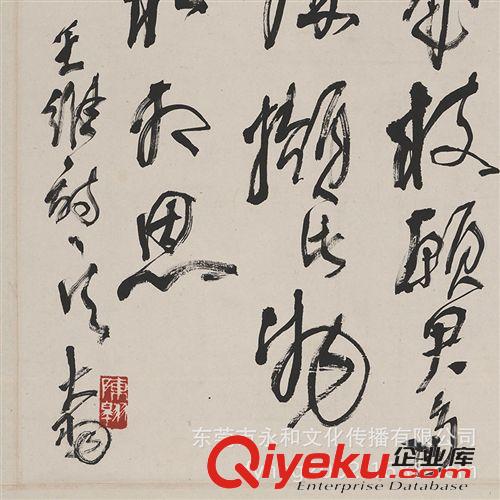 枝願君多
擷此物
相思
王維詩
大羽
东莞市永和文化传播有限公司
Qiyeku.com 企业库
Enterprise Database